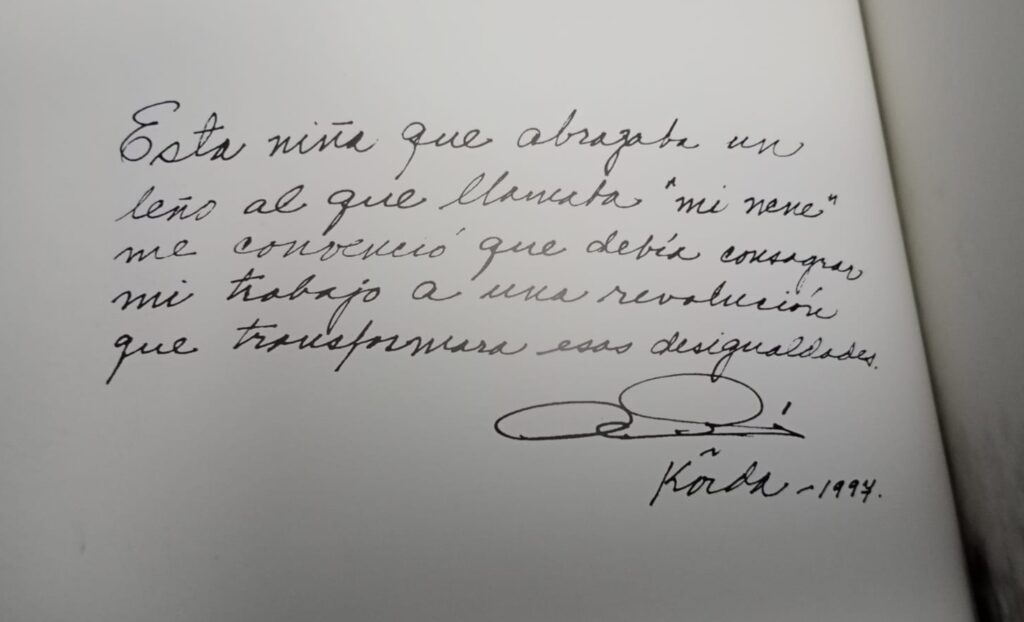 Esta niña que abrazaba un
leño al que llamaba "mi nene"
me convenció que debía consagrar
mi trabajo a una revolución
que transformara esas desigualdades.
Korda - 1997.